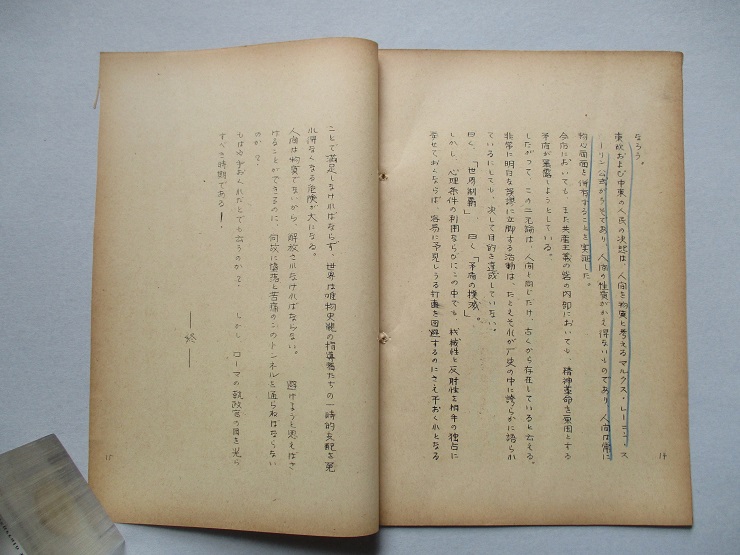 なろう。
東欧および中東の人民の決然は、人間を物質と考えるマルクス・レーニン・ス
ターリン公式がうそであり、人間の性質がかえ得ないものであり、人間は常に
物心両面を得有することを実証した。
今后においても、また共産主義の砦の内部においても、精神革命を原因とする
矛盾が暴露しようとしている。
したがって、この二元論は、人間と同じだけ、古くから存在していると云える。
非常に明白な誤謬に立脚する活動は、たとえそれが歴史の中に誇らかに語られ
ているにしても、決して目的を達成していない。
曰く、「世界制覇」 曰く「矛盾の撲滅」。
しかし、心理条件の利用ならびにこの中でも、機械性と反射性を相手の独占に
委せておくならば、容易に予見しうる打撃を回避するのにさえ手おくれとなる
14
ことで満足しなければならず、世界は唯物史観の指導者たちの一時的支配を免
れ得なくなる危険が大になる。
人間は物質でないから、解放されなければならない。 避けようと思えばさ
けることができるのに、何故に堕落と苦痛のこのトンネルを通らねばならない
のか?。
もはや手おくれだとでも言うのか?。 しかし、ローマの執政官の目を光ら
すべき時期である!
—終—
15